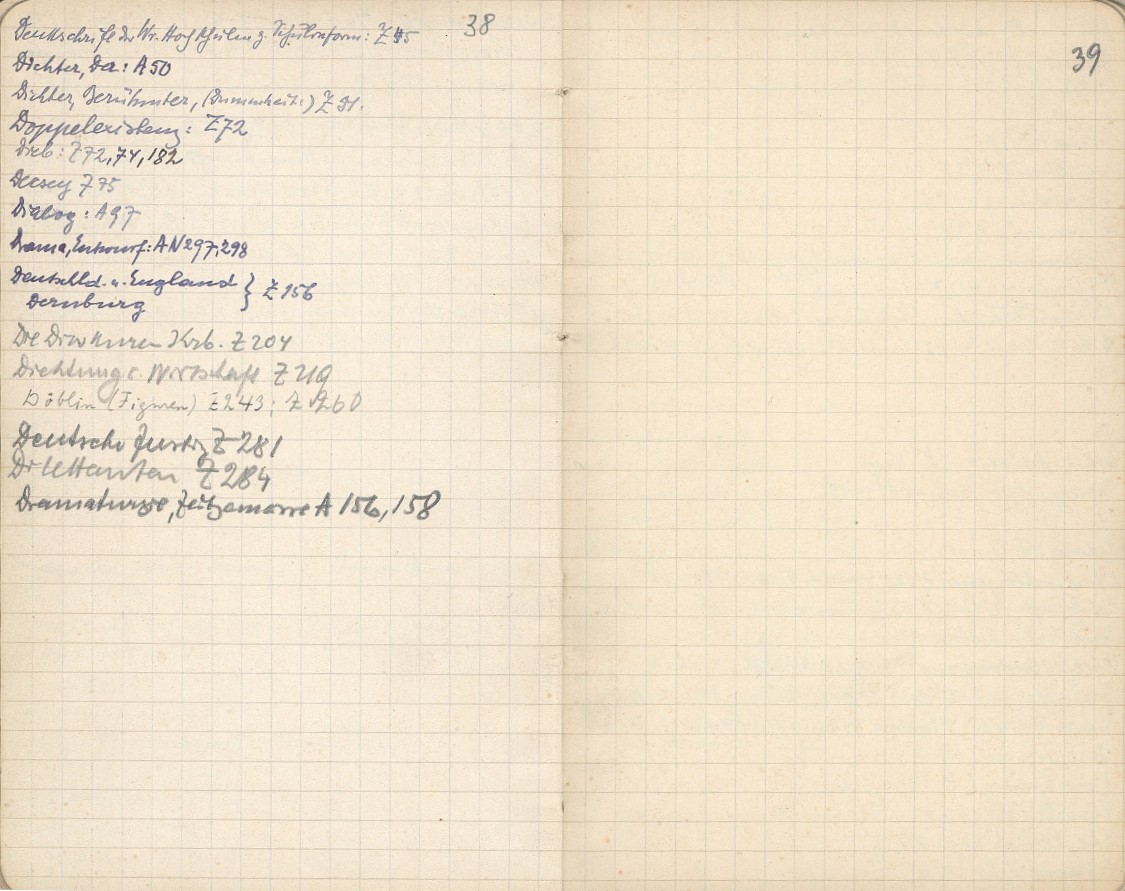 38
Denkschrift der Wr. Hochschulen z. Schulreform: Z 45
Dichter, Der: A 50
Dichter, Berühmter, (Dummheit:) Z 31.
Doppelexistenz: Z 72
Dieb: Z 72, 74, 182
Decsey Z 75
Dialog: A 97
Drama, Entwurf: AN 297, 298
Deutschld. u. England } Z 156
Dernburg
Die Dioskuren Z 204
Dichtung Wirtschaft Z 219
Döblin (Figuren) Z 243; Z 260
Deutsche Justiz Z 281
Dilettanten Z 284
Dramaturgie, Zeitgemässe A 156, 158
39